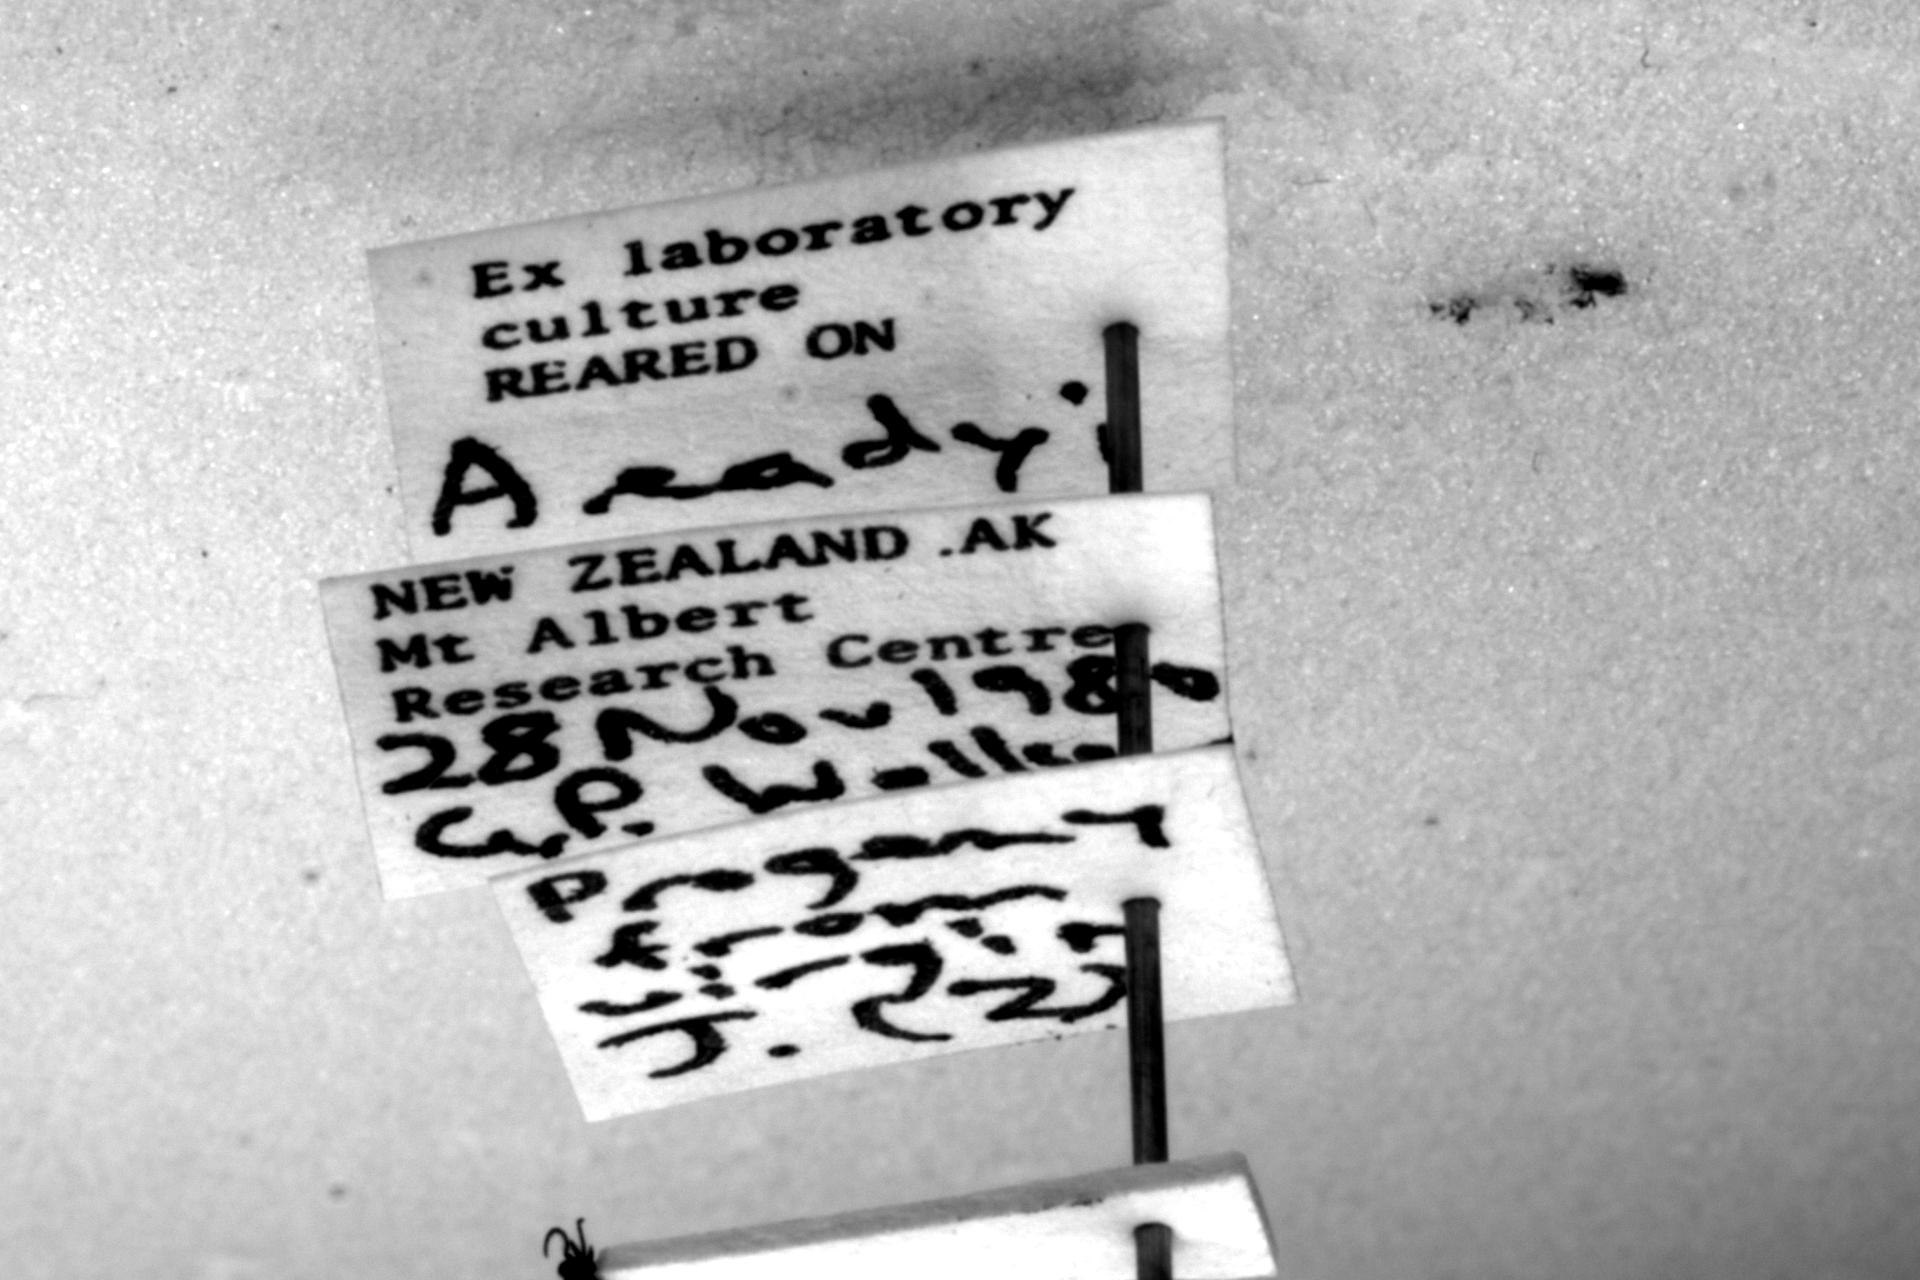 Ex laboratory
culture
REARED ON
A readyi
NEW ZEALAND .AK
Mt Albert
Research Centre
28 Nov 1980
G.P. Walker
Progeny
from
virgin
J. (2)